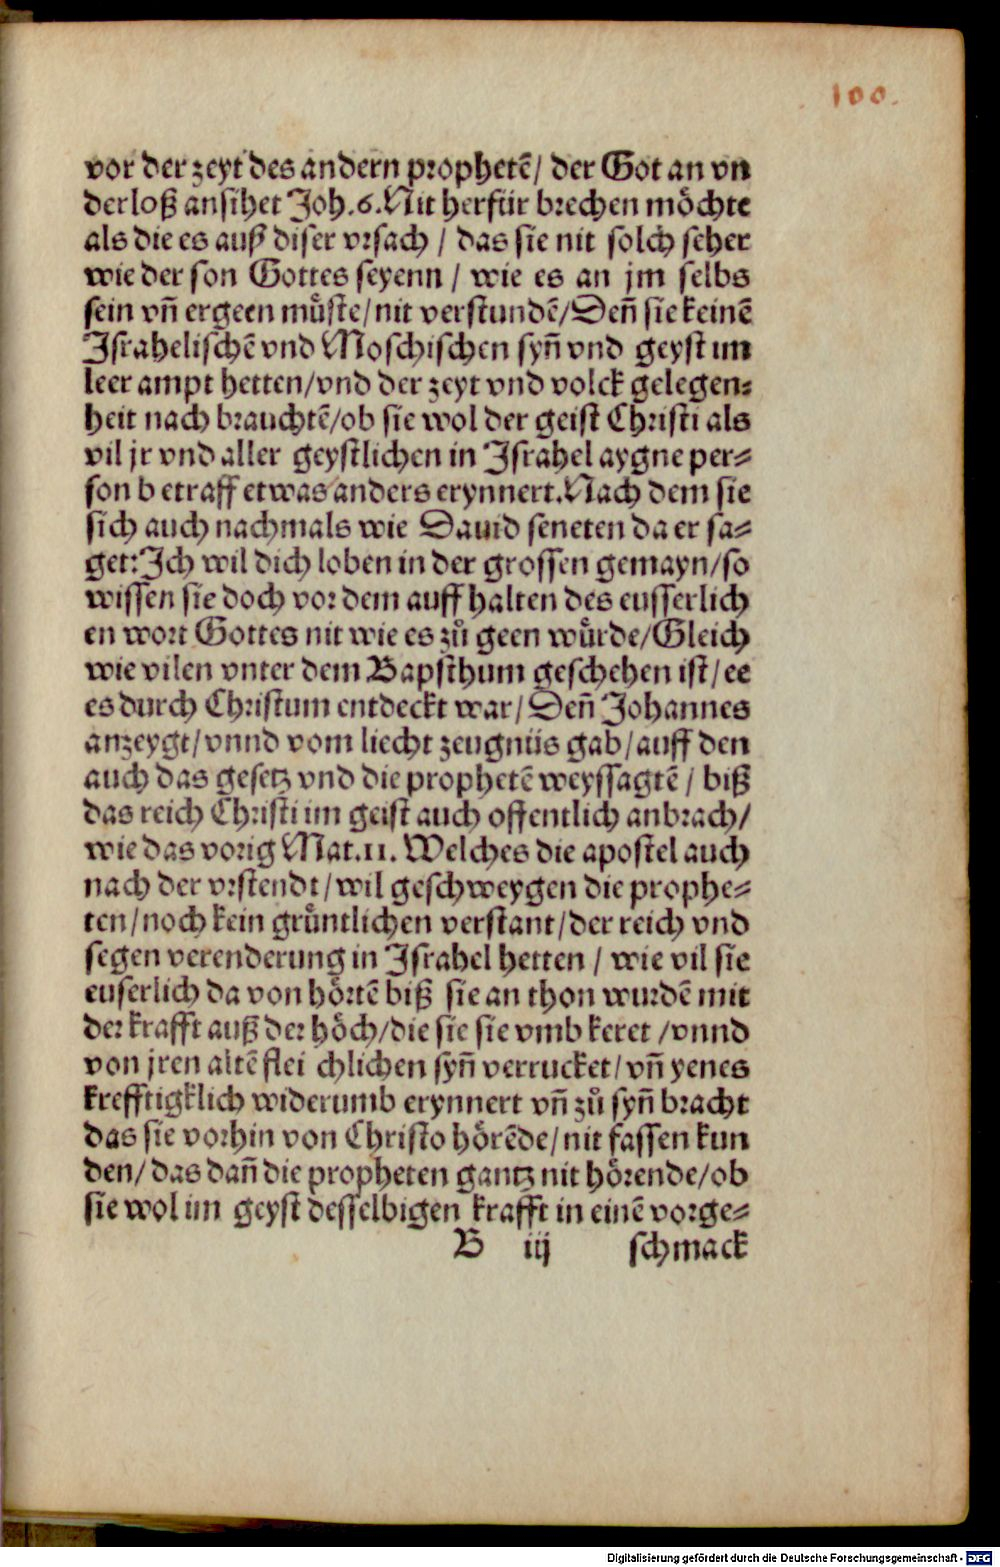 100.
vor der zeyt des andern prophetē/ der Got an vn
derloß ansihet Joh.6. Nit herfür brechen möchte
als die es auß diser vrsach / das sie nit solch seher
wie der son Gottes seyenn / wie es an jm selbs
sein vñ ergeen můste/nit verstundē/Deñ sie keinē
Jsrahelischē vnd Moschischen syñ vnd geyst im
leer ampt hetten/vnd der zeyt vnd volck gelegen⸗
heit nach brauchtē/ob sie wol der geist Christi als
vil jr vnd aller geystlichen in Jsrahel aygne per⸗
son b etraff etwas anders erynnert. Nach dem sie
sich auch nachmals wie Dauid seneten da er sa⸗
get: Jch wil dich loben in der grossen gemayn/so
wissen sie doch vor dem auff halten des eusserlich
en wort Gottes nit wie es zů geen wůrde/Gleich
wie vilen vnter dem Bapsthum geschehen ist/ee
es durch Christum entdeckt war/ Deñ Johannes
anzeygt/vnnd vom liecht zeugnüs gab/auff den
auch das gesetz vnd die prophetē weyssagtē / biß
das reich Christi im geist auch offentlich anbrach/
wie das vorig Mat.11. Welches die apostel auch
nach der vrstendt/wil geschweygen die prophe⸗
ten/noch kein grůntlichen verstant/der reich vnd
segen verenderung in Jsrahel hetten / wie vil sie
euserlich da von hörtē biß sie an thon wurdē mit
der krafft auß der höch/die sie sie vmb keret /vnnd
von jren altē flei chlichen syñ verrucket/vñ yenes
krefftigklich widerumb erynnert vñ zů syñ bracht
das sie vorhin von Christo hörēde/nit fassen kun
den/das dañ die propheten gantz nit hörende/ob
sie wol im geyst desselbigen krafft in einē vorge⸗
B iij schmack
Digitalisierung gefördert durch die Deutsche Forschungsgemeinschaft - DFG